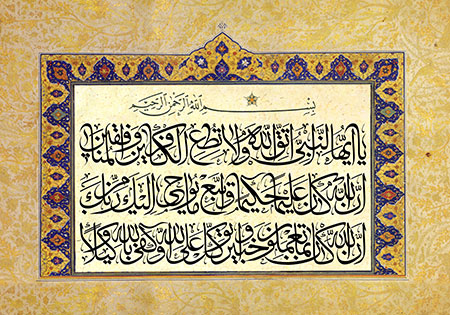 بسم الله الرحمن الرحيم
يا أيها النبي اتق الله ولا تطع الكافرين والمنافقين
إن الله كان عليما حكيما واتبع ما يوحى إليك من ربك
إن الله كان بما تعملون خبيرا وتوكل على الله وكفى بالله وكيلا